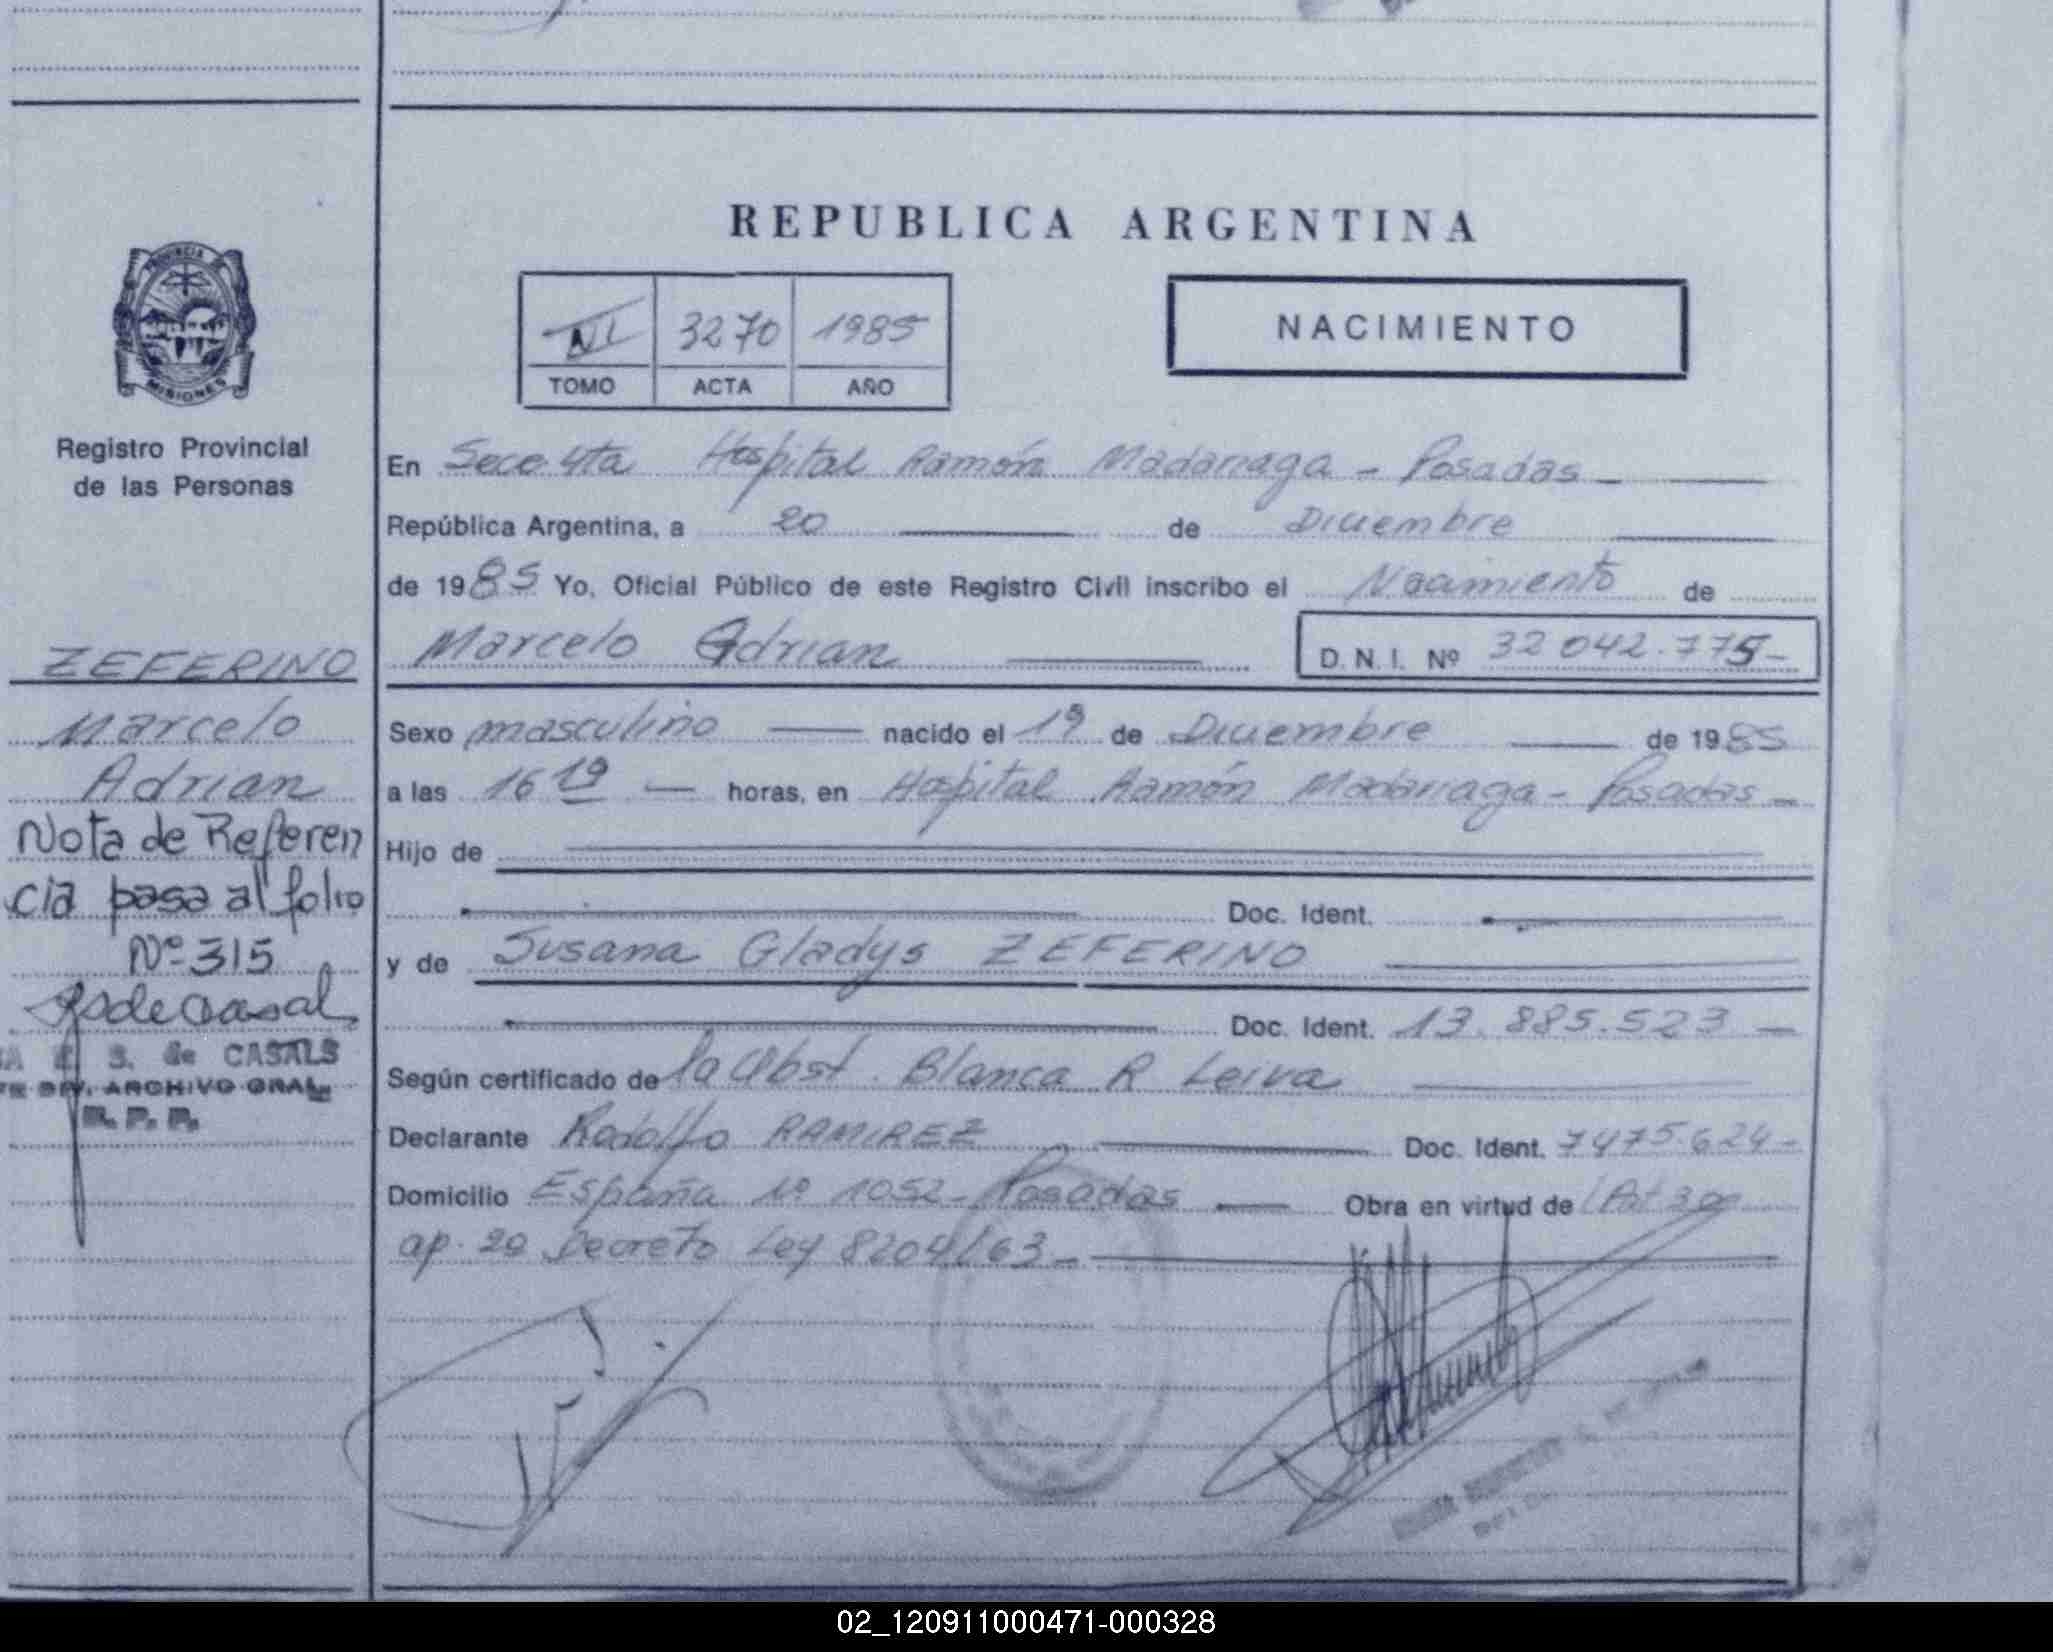 REPUBLICA ARGENTINA
3270 1985
TOMO ACTA AÑO
NACIMIENTO
PROVINCIA DE
MISIONES
Registro Provincial
de las Personas
ZEFERINO
Marcelo
Adrian
Nota de Referen
cia pasa al folio
Nº 315
S. de CASALS
DIV. ARCHIVO GRAL
R. P. P.
En Secc. 4ta Hospital Ramón Madariaga - Posadas -
República Argentina, a 20 de Diciembre
de 1985 Yo, Oficial Público de este Registro Civil inscribo el Nacimiento de
Marcelo Adrian D. N. I. Nº 32 042.775-
Sexo masculino nacido el 19 de Diciembre de 1985
a las 16 19 horas, en Hospital Ramón Madariaga - Posadas -
Hijo de
Doc. Ident.
y de Susana Gladys ZEFERINO
Doc. Ident. 13.885.523 -
Según certificado de la Obst. Blanca R Leiva
Declarante Rodolfo RAMIREZ Doc. Ident. 7475.624-
Domicilio España Nº 1052 - Posadas Obra en virtud de
ap. 2º Decreto Ley 8204/63 -
02_120911000471-000328